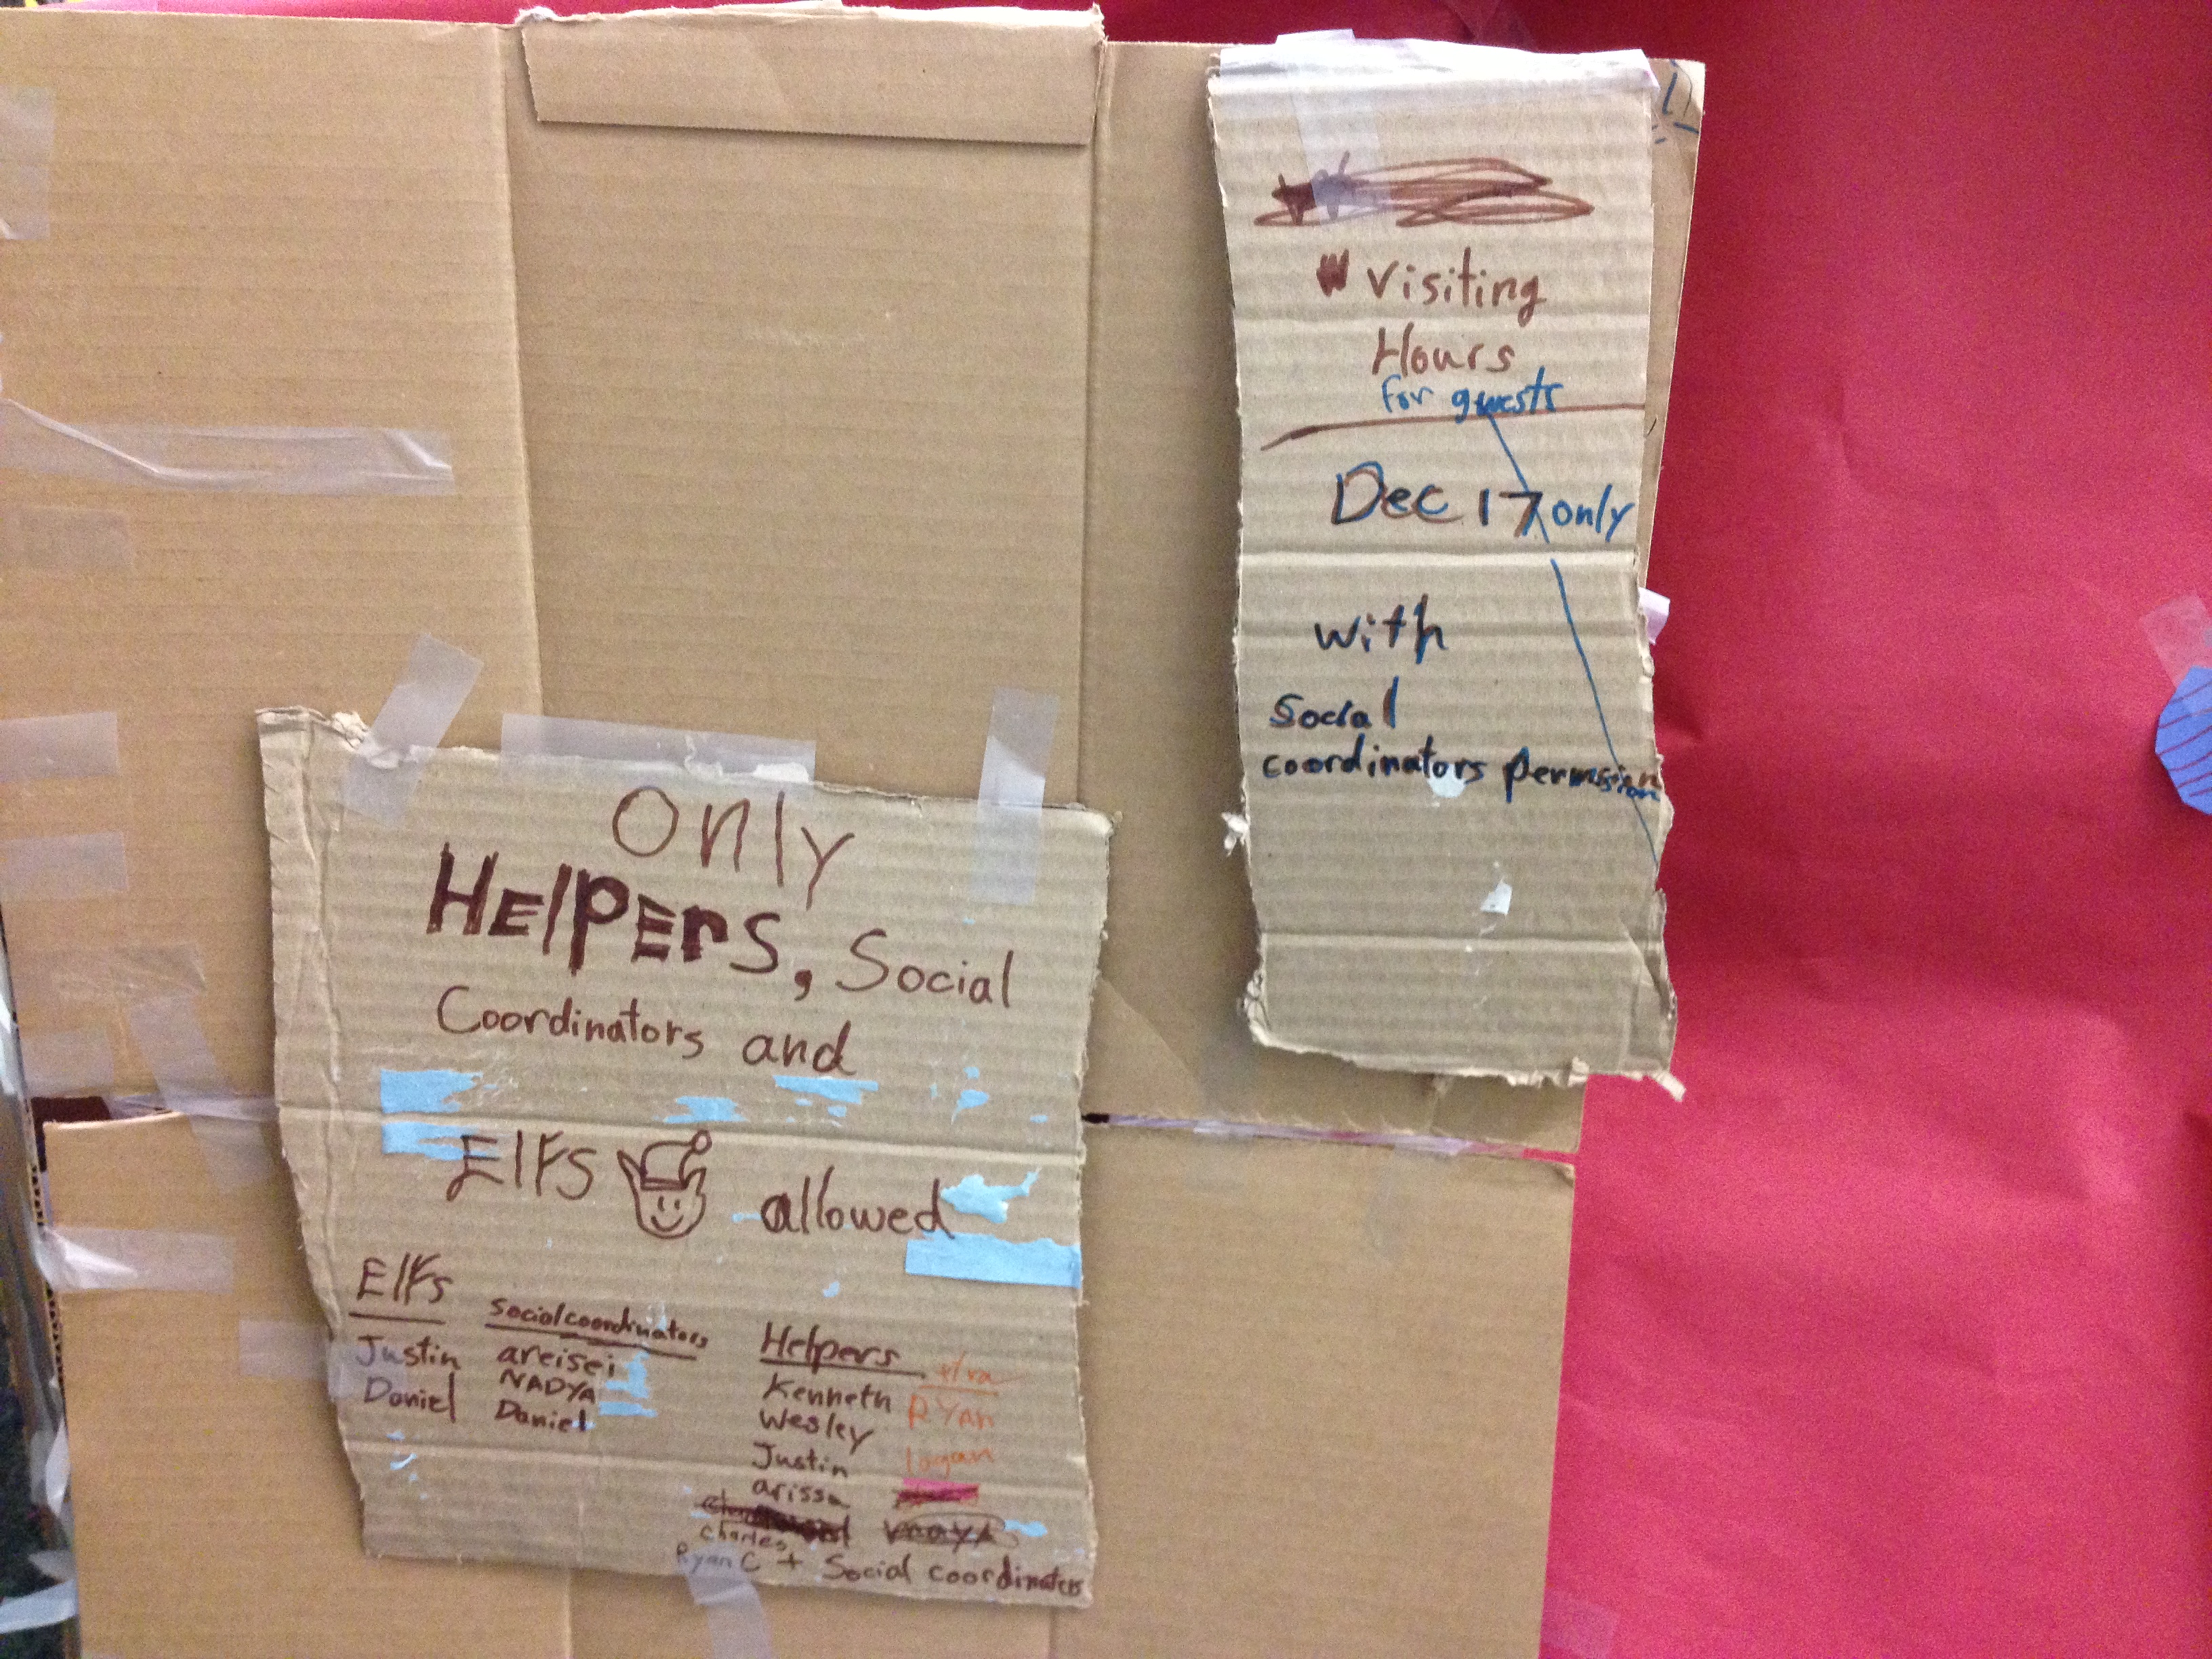 Visiting
Hours
for guests
Dec 17 only
with
Social
coordinators permision
Only
HElPErS, Social
Coordinators and
ElFS allowed
ElFs
Justin
Daniel
social coordinators
areisei
NADYA
Daniel
Helpers
Kenneth
Wesley
Justin
arissa
charles
Ryan C + Social coordinaters
RYan
logan